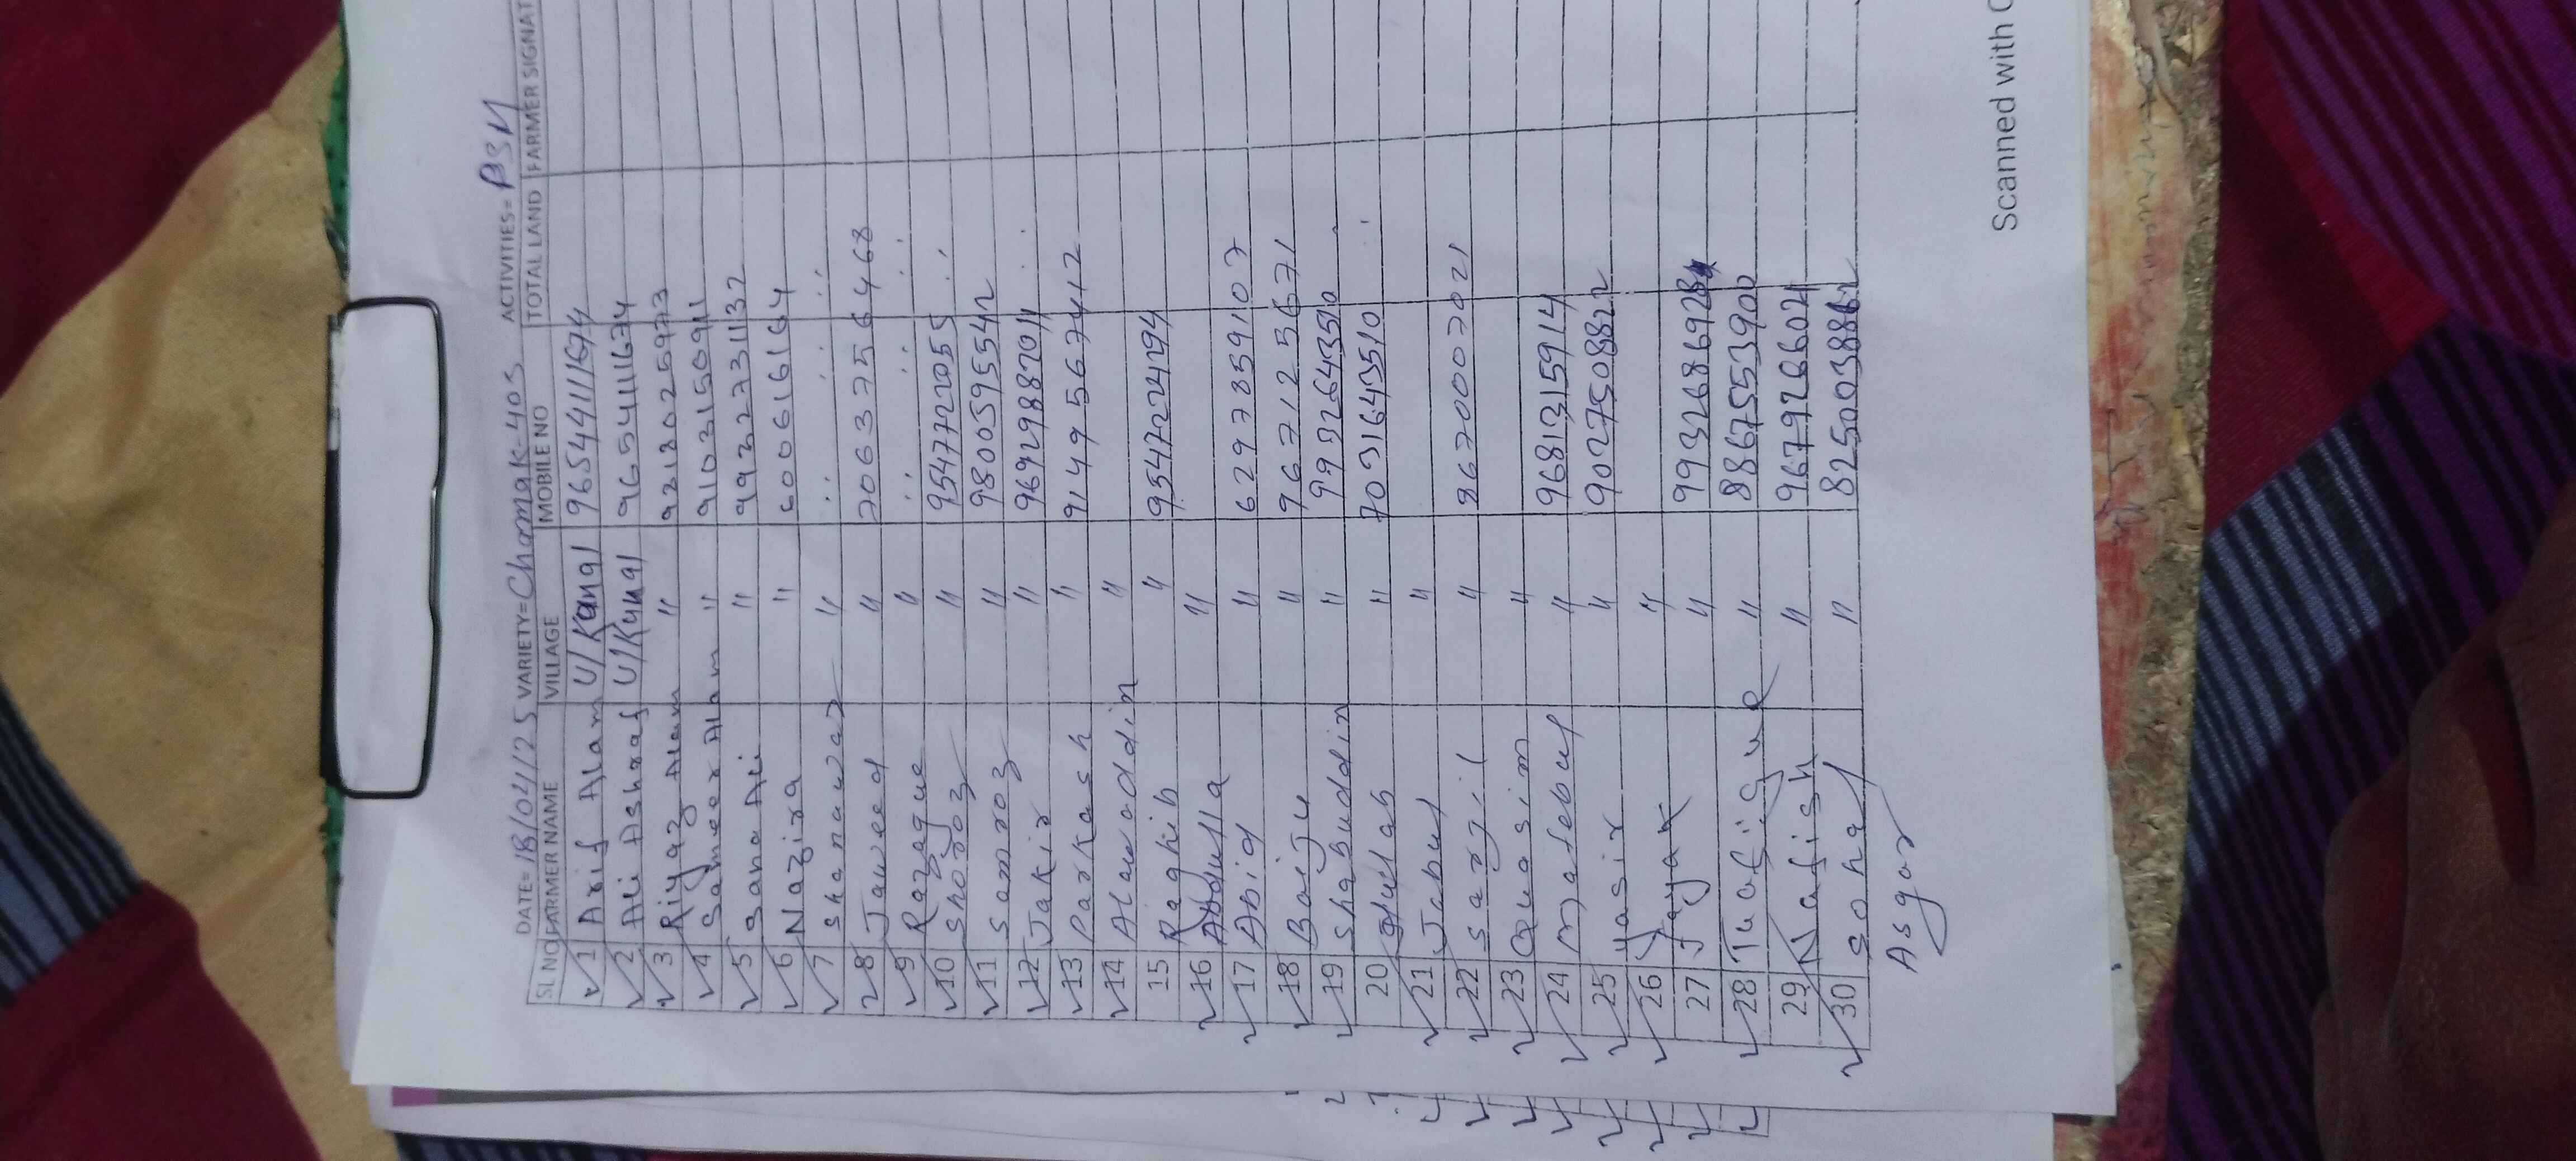 DATE= 18/04/25 VARIETY= Chamak-403 ACTIVITIES= PSM
SL NO FARMER NAME VILLAGE MOBILE NO TOTAL LAND FARMER SIGNAT
1 Arif Alam U/Kangal
2 Ali Ashraf U/Kungal 9654111674
3 Riyaz Alam " 9218025973
4 Sameer Alam " 9103150911
5 Sana Ali " 9932273132
6 Nazira " 6006616164
7 Shanawaz "
8 Jaweed " 7063375646
9 Razaque "
10 Shoroz " 9547722055
11 Samroz " 9800395542
12 Jakir " 9692988701
13 Parkash " 9149567412
14 Alawoddin "
15 Raghib " 9547224294
16 Abdulla "
17 Abid " 6297859107
18 Baiju " 9671256671
19 Shabuddin " 9932643510
20 " 7031643510
21 Jabul "
22 Sarjil " 8670007021
23 Quasim "
24 Mafebul " 9681315914
25 yasir " 9027508822
26 "
27 Jayak " 993268692
28 Tuafique " 8867553900
29 Nafish " 9679266021
30 Sohal " 82500388
Asgar
Scanned with C